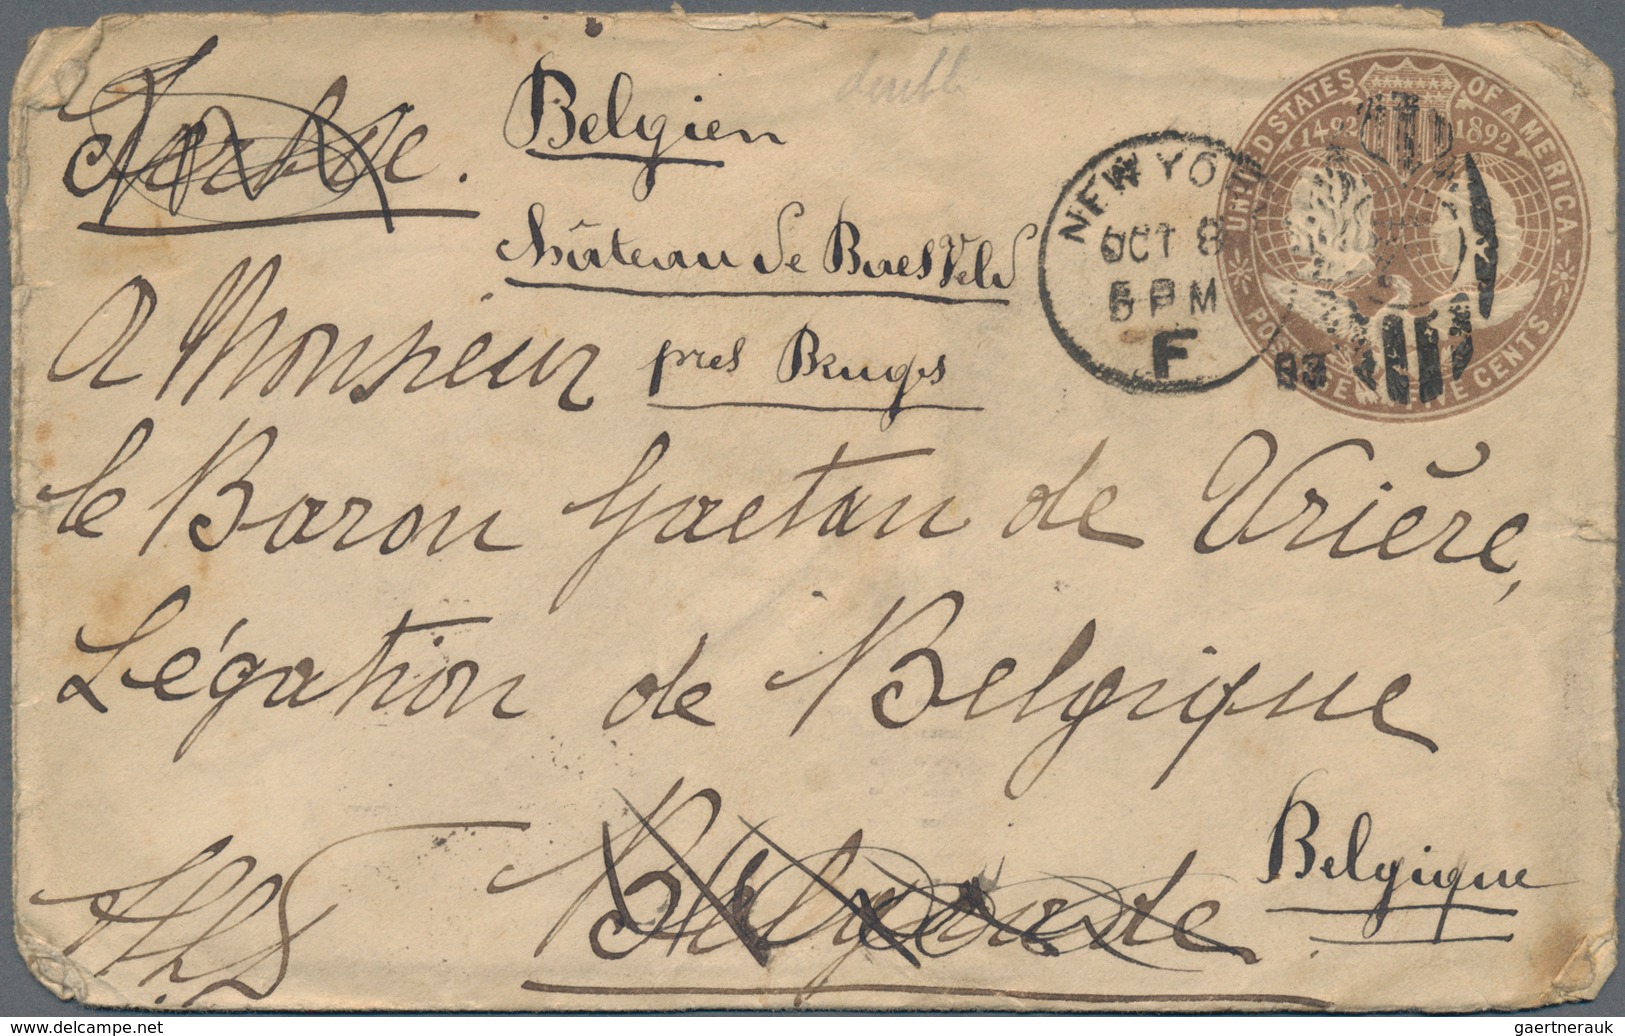 Serbie.
Belgien
Château de Baesveld
près Bruges
double
NEW YORK
OCT 8
5 PM
F
93
UNITED STATES OF AMERICA
1492 1892
POSTAGE FIVE CENTS
A Monsieur
le Baron Gaetan de Vrière,
Légation de Belgique
Belgrade
Belgique
delcampe.net
gaertnerauk